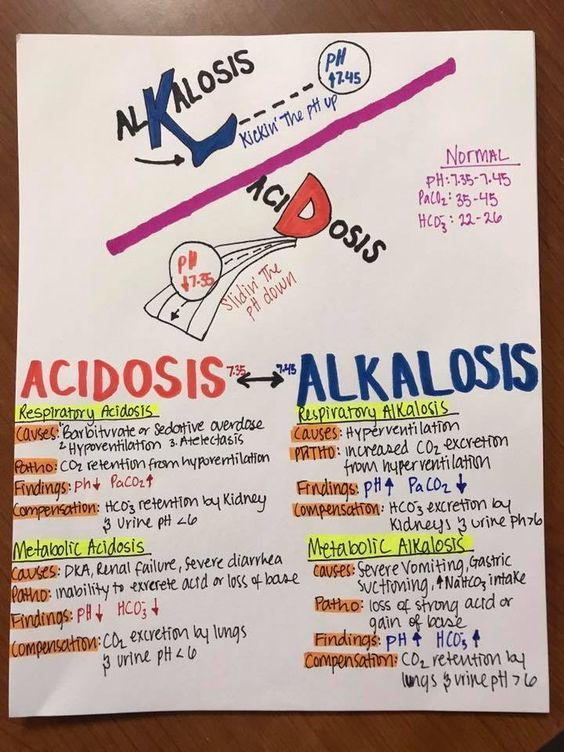 ALKALOSIS
pH
↑7.45
Kickin' The pH up
NORMAL
pH: 7.35-7.45
PaCO₂: 35-45
HCO₃⁻: 22-26
ACIDOSIS
pH
↓7.35
Slidin' The
pH down
ACIDOSIS 7.35 ↔ 7.45 ALKALOSIS
Respiratory Acidosis
Causes: 1. Barbiturate or Sedative overdose
2. Hypoventilation 3. Atelectasis
Patho: CO₂ retention from hypoventilation
Findings: Ph↓ PaCO₂↑
Compensation: HCO₃⁻ retention by Kidney
& Urine pH <6
Metabolic Acidosis
Causes: DKA, Renal failure, Severe diarrhea
Patho: inability to excrete acid or loss of base
Findings: pH↓ HCO₃⁻↓
Compensation: CO₂ excretion by lungs
& urine pH <6
Respiratory Alkalosis
Causes: Hyperventilation
PATHO: increased CO₂ excretion
from hyperventilation
Findings: pH↑ PaCO₂↓
Compensation: HCO₃⁻ excretion by
Kidneys & urine Ph>6
Metabolic Alkalosis
Causes: Severe Vomiting, Gastric
Suctioning, ↑NaHCO₃ intake
Patho: loss of strong acid or
gain of base
Findings: pH↑ HCO₃⁻↑
Compensation: CO₂ retention by
lungs & urine pH >6